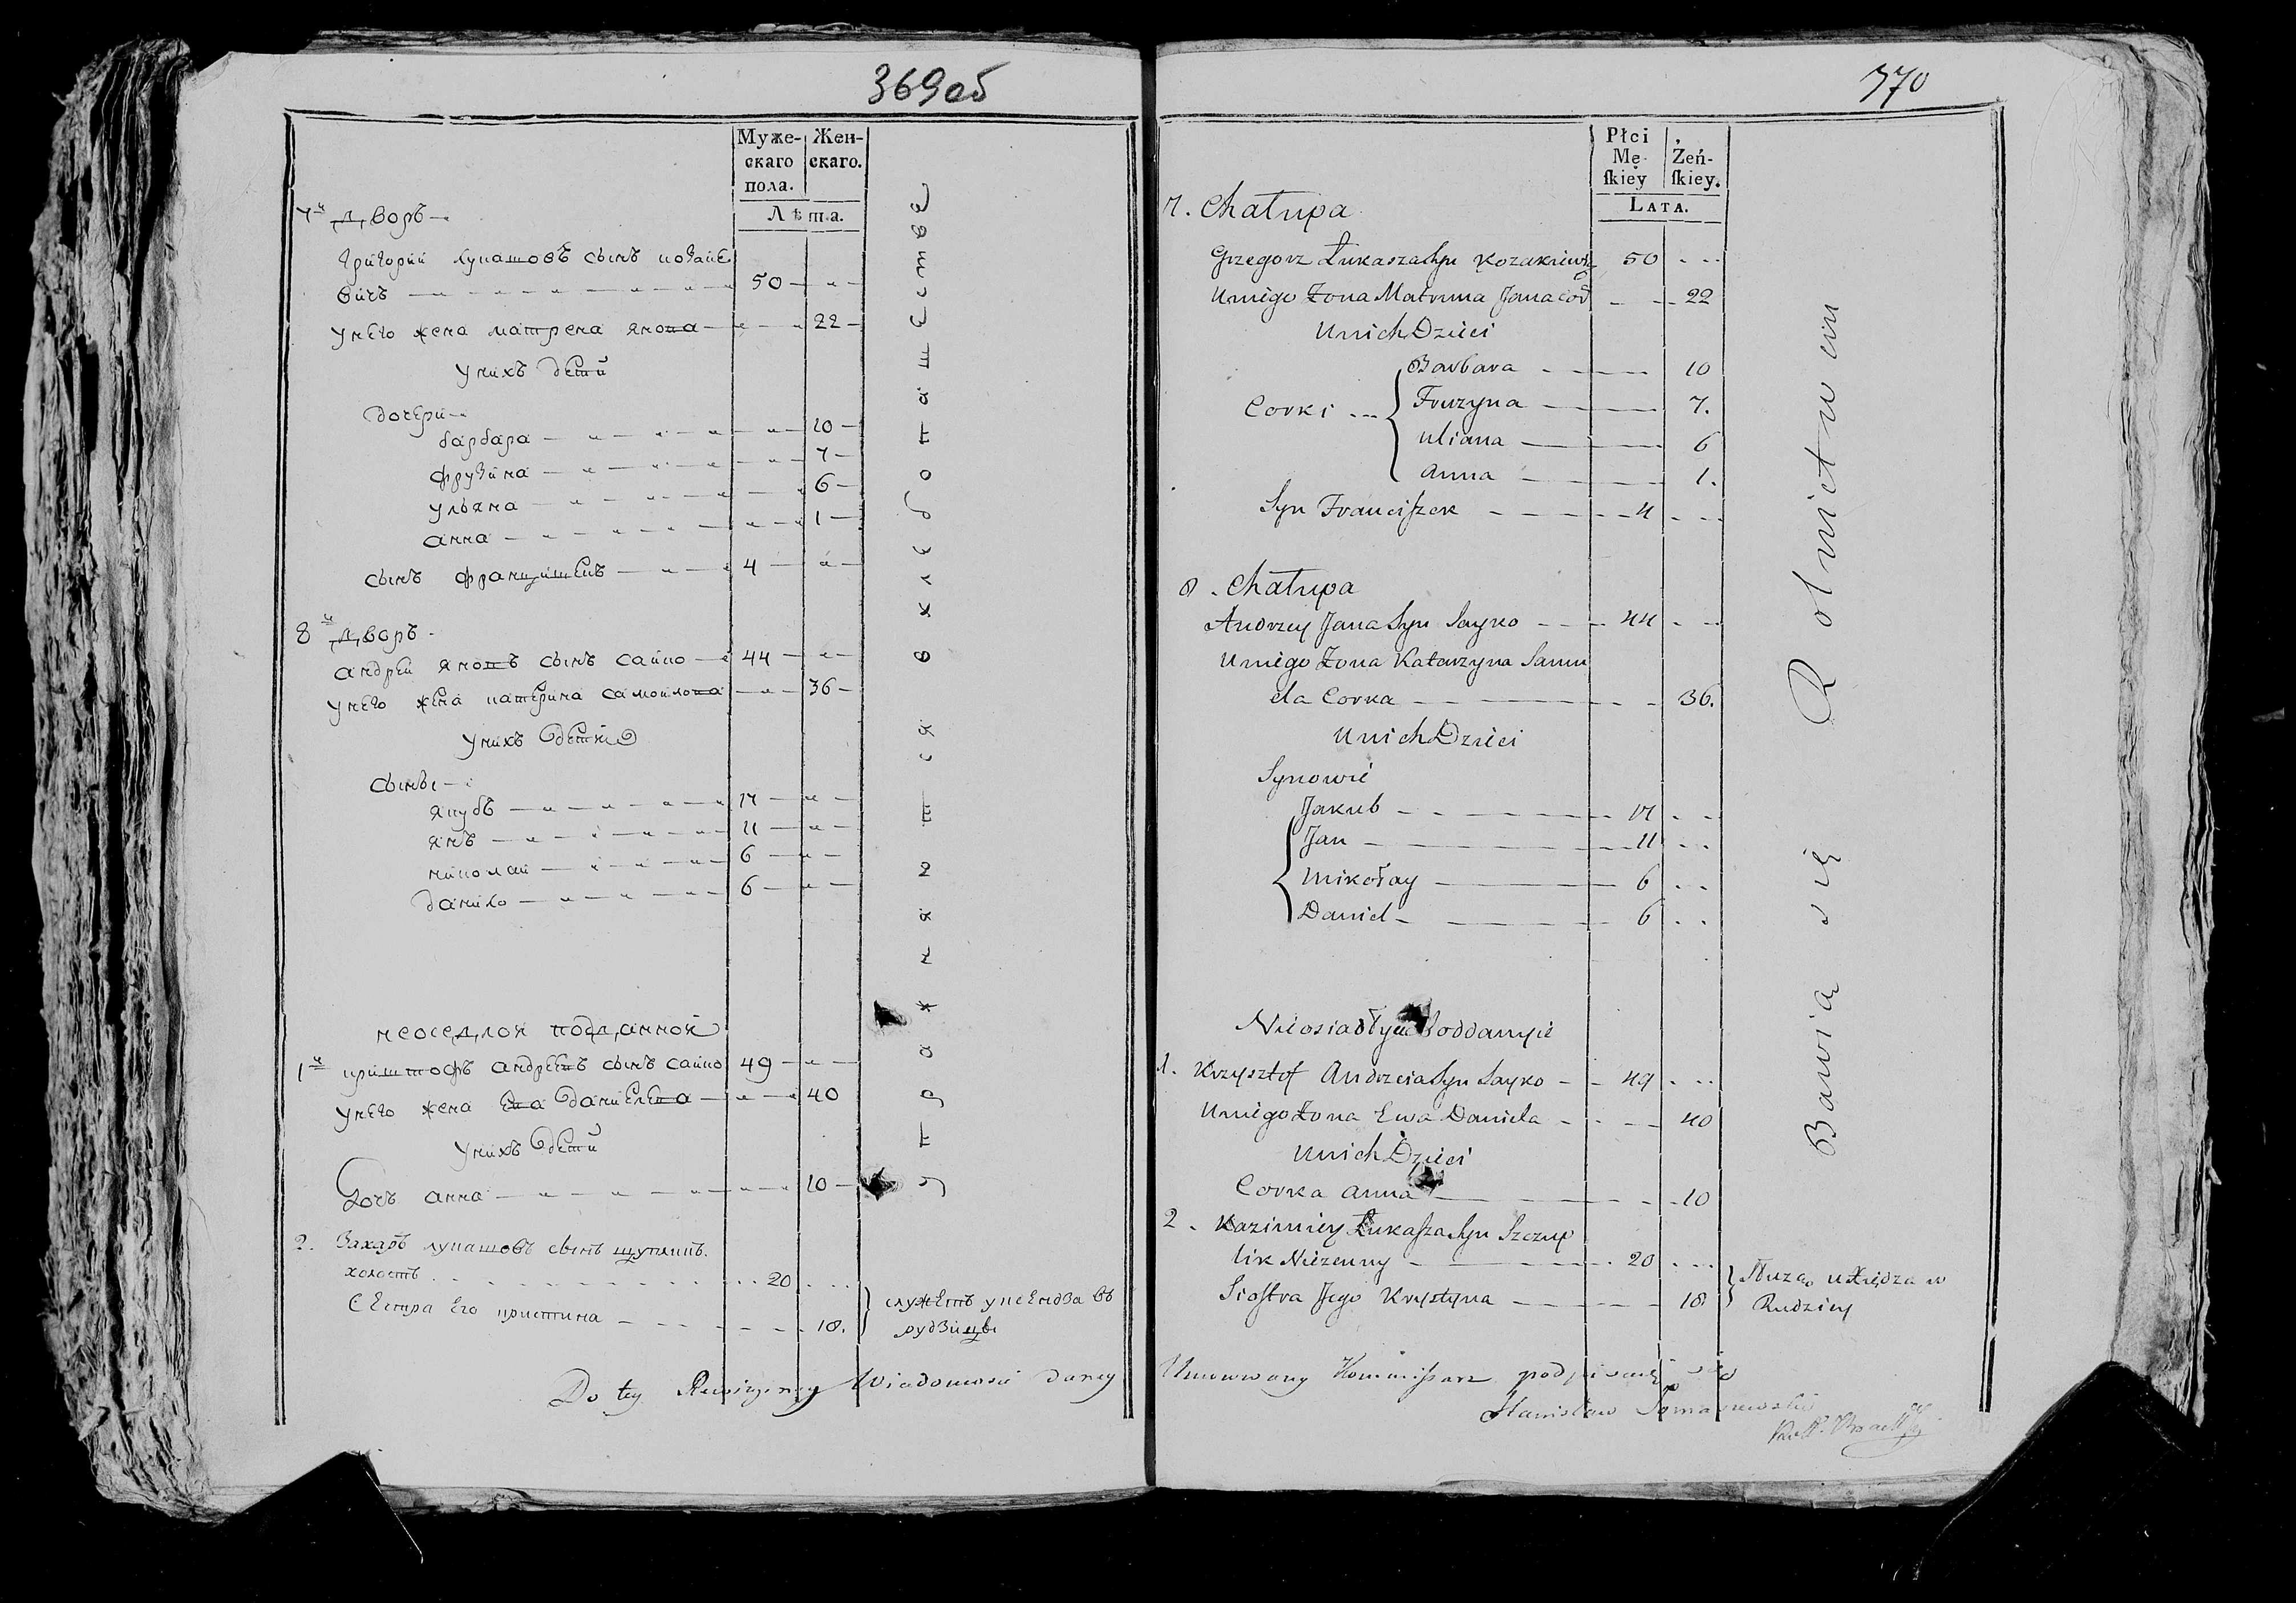 369об
Муже- Жен-
скаго скаго.
пола.
Лѣта.
7й дворъ
Григорий лукашовъ сынъ козаке
вичъ 50
унего жена матрена янова 22
унихъ дети
дочери
барбара 10
фрузина 7
ульяна 6
анна 1
сынъ францишекъ 4
8й дворъ
андрей яновъ сынъ сайко 44
унего жена катерина самойлова 36
унихъ дети
сыны
якубъ 17
янъ 11
николай 6
данило 6
неоседлой подданной
1й криштофъ андреевъ сынъ сайко 49
унего жена ева даниелева 40
унихъ дети
Дочъ анна 10
2. Захаръ лукашовъ сынъ
холостъ 20
сестра его кристина 18.
служетъ уксендза въ
рудзицѣ
упражняются вхлебопашестве
Do tey Rewizyney Wiadomosci daney
370
Płci
Mę- Żeń-
ſkiey ſkiey.
LATA.
7. Chałupa
Grzegorz Łukasza Syn Kozakiewicz 50
U niego Żona Matruna Jana cor 22
U nich Dzieci
Corki
Barbara 10
Fruzyna 7.
Uliana 6
Anna 1.
Syn Franciſzek 4
8. Chałupa
Andrzey Jana Syn Sayko 44
U niego Żona Katarzyna Samu
ela Corka 36.
U nich Dzieci
Synowie
Jakub 17
Jan 11
Mikołay 6
Daniel 6
Nieosiadłych Poddanych
1. Krzysztof Andrzeia Syn Sayko 49
U niego Żona Ewa Daniela 40
U nich Dzieci
Corka Anna 10
2. Kazimierz Łukaſza Syn Szczup
lik Nieżenny 20
Sioſtra Jego Krystyna 18
Służą u Xiędza w
Rudzicy
Bawia się Rolnictwem
Umocowany Kommiſsarz podpisuię się
Stanisław Tomaszewski